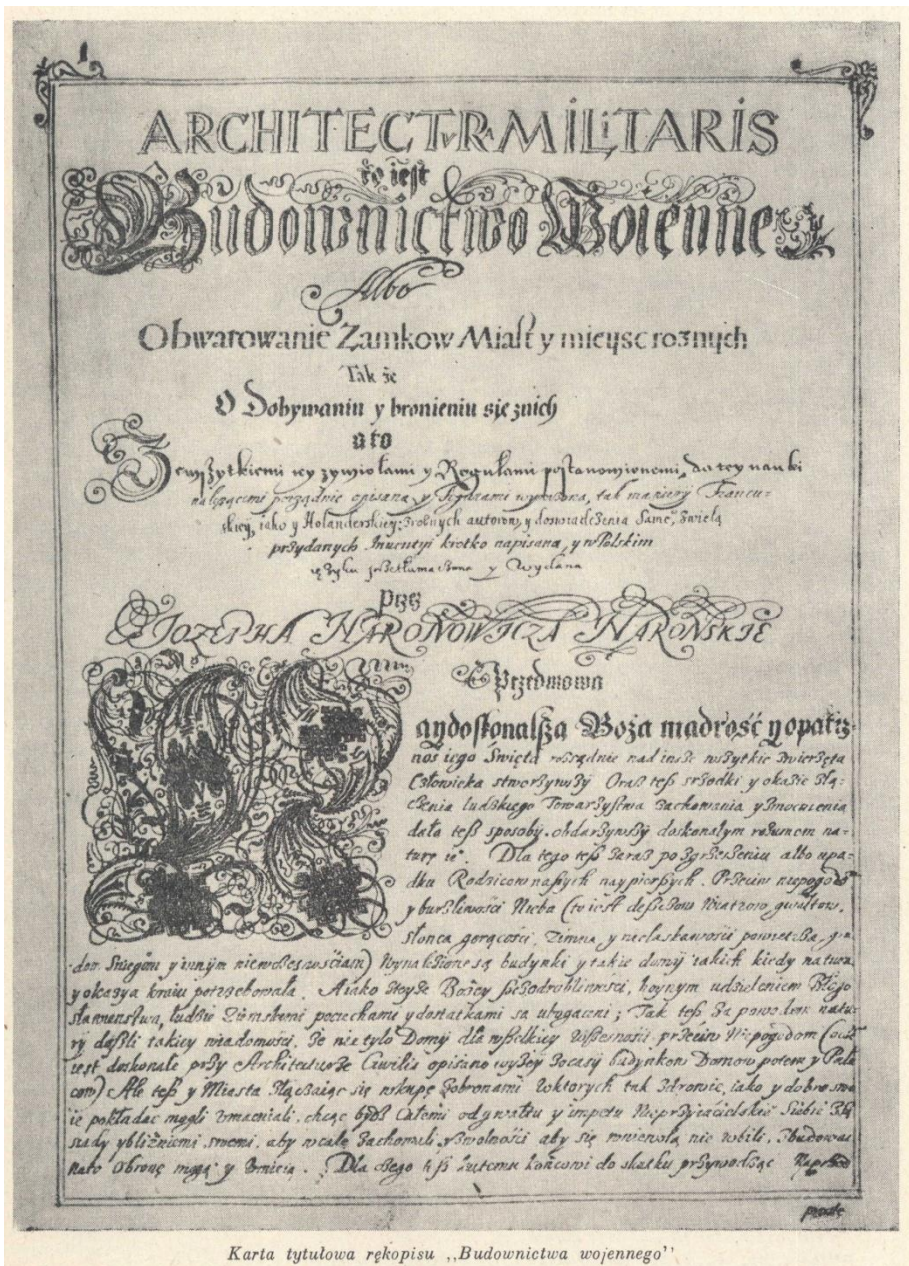 1
ARCHITECTVRA MILITARIS
to iest
Budownictwo Woienne
Albo
Obwarowanie Zamkow Miast y mieysc roznych
Tak że
O Dobywaniu y bronieniu się znich
a to
Zewszytkiemi iey zywiołami y Regułami postanowionemi, do tey nauki
nalezącemi porządnie opisana, y Figurami wyrażona, tak maniery Francu-
skiey, iako y Holanderskiey: z roznych autorow, y doswiadczenia Same°, z wielą
przydanych Inuentyi krotko napisana, y w Polskim
ięzyku przetłumaczona y Wydana
przez
IOZEPHA NARONOWICZA NARONSKIE
Przedmowa
Naydoskonalsza Boża mądrość y opatrz-
nos iego Swięta rozsądnie nad insze wszytkie zwierzęta
Człowieka stworzywszy Oraz tesz srzodki y okazie złą-
czenia ludzkiego Towarzystwa zachowania y zmocnienia
dała tesz sposoby, obdarzywszy doskonałym rozumem na-
turę ie°. Dla tego tesz zaraz po zgrzeszeniu albo upa-
dku Rodzicow naszych naypierszych. Przeciw niepogodo
y burzliwości Nieba (to iest deszczow Wiatrow, gwałtow,
słonca gorącości, Zimna, y niełaskawości powietrza, gra-
dow Sniegow y innym niewczesnościam) Wynalezione są budynki y takie domy iakich kiedy natura
y okazya kraiu potrzebowała. A iako Boskiey szczodrobliwości, hoynym udzieleniem Błogo
sławienstwa, ludzie Ziemskiemi pociechami y dostatkami są ubogaceni; Tak tesz za powodem natu-
ry daszli takiey wiadomości, że nie tylo Domy dla wszelkiey przeciw Niepogodom
iest doskonale przy Architecturze Ciwilis opisano wyżey budynkow Domow potem y Pała
cow) Ale tesz y Miasta złączaiąc się wkupę zobronami wktorych tak zdrowie, iako y dobro swo
ie pokładac mogli wmacniali, chcąc bydz Całemi od gwałtu y impetu Nieprzyiacielskie°
sady y bliźniemi swemi, aby wcale zachowali, y zwolności aby się wniewolą nie wbili, zbudowac
nato Obronę mogą y. Dla czego tesz końcowi do skutku przywodząc Naprzod
Karta tytułowa rękopisu ,,Budownictwa wojennego''